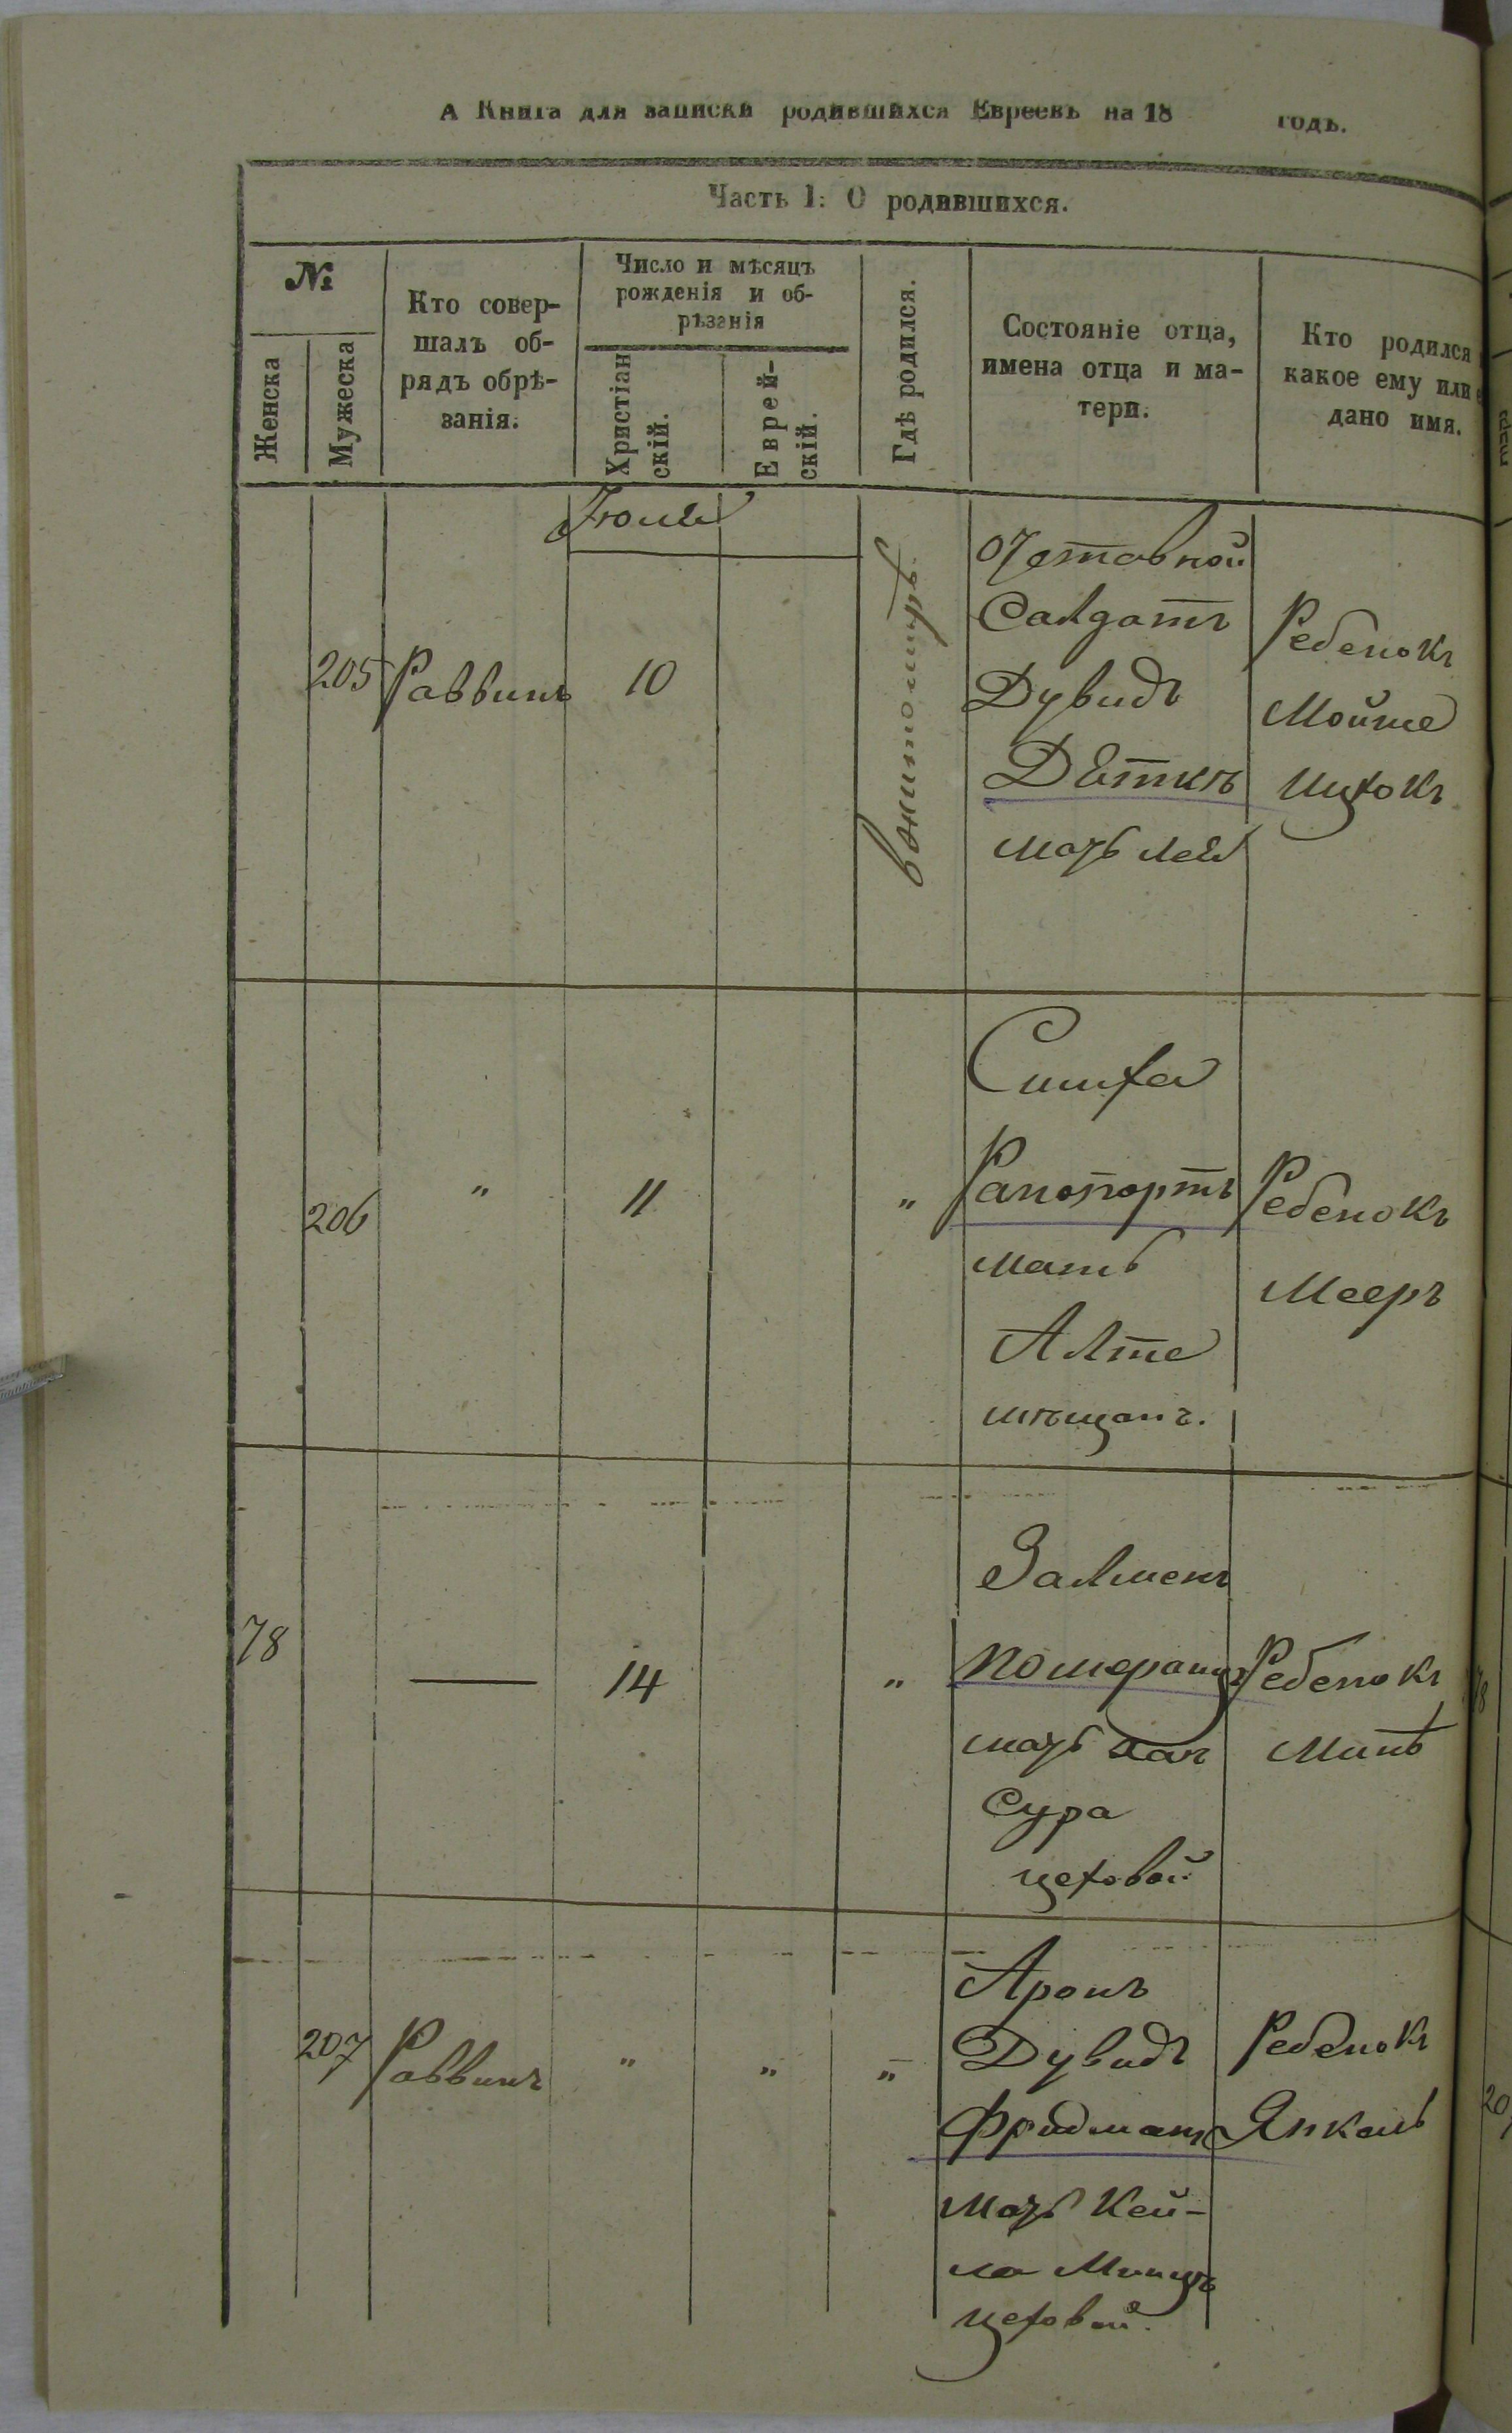 А Книга для записки родившихся Евреевъ на 18 годъ.
Часть I: О родившихся.
№
Женска
Мужеска
Кто совер-
шалъ об-
рядъ обрѣ-
занія.
Число и мѣсяцъ
рожденія и об-
рѣзанія
Христіан
скій.
Еврей-
скій.
Гдѣ родился.
Состояніе отца,
имена отца и ма-
тери.
Кто родился
какое ему или е
дано имя.
205
Раввинъ
10
вжитомиръ.
отставной
Салдатъ
Дувидъ
Дѣткъ
мать Лея
Ребенокъ
Мойше
Ицхокъ
206
"
11
"
Симха
Рапопортъ
мать
Алте
мѣщан.
Ребенокъ
Мееръ
78
—
14
"
Залменъ
Померанцъ
мать Хая
Сура
цеховой
Ребенокъ
207
Раввинъ
"
"
"
Аронъ
Дувидъ
Фридманъ
Мать Кей-
ла Минцъ
цеховой.
Ребенокъ
Янкель